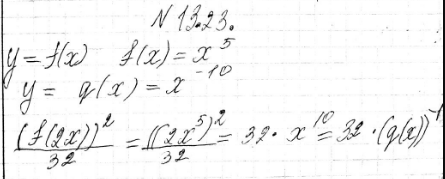 N 13.23.
y = f(x) f(x) = x^5
y = q(x) = x^-10
(f(2x))^2 / 32 = ((2x^5)^2 / 32 = 32 · x^10 = 32 · (q(x))^-1